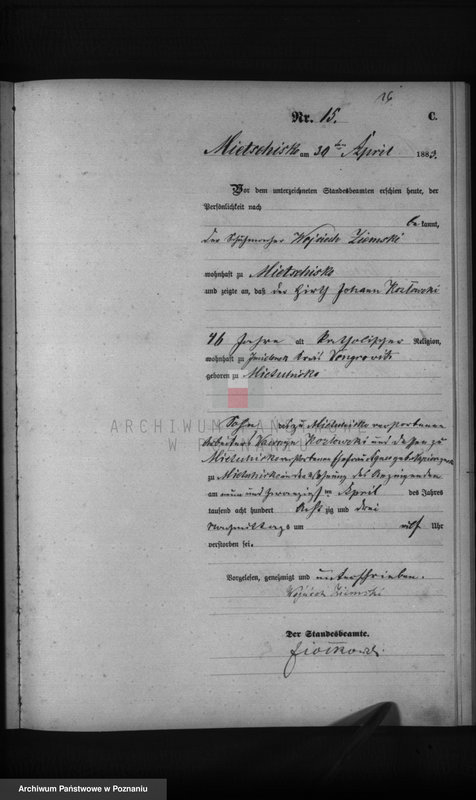 16
Nr. 15.
C.
Mietschisko am 30ten April 1883.
Vor dem unterzeichneten Standesbeamten erschien heute, der
Persönlichkeit nach
bekannt,
der Schuhmacher Wojciech Ziemski
wohnhaft zu Mietschisko
und zeigte an, daß der Hirth Johann Kozlowski
46 Jahre alt katholischer Religion,
wohnhaft zu Kreis Wongrowitz
geboren zu Mietschisko
ARCHIWUM PAŃSTWOWE
W POZNANIU
Sohn des zu Mietschisko verstorbenen
Arbeiters Kozlowski und dessen zu
Mietschisko verstorbenen Ehefrau
zu Mietschisko in der Wohnung des Anzeigenden
am neun und zwanzigsten April des Jahres
tausend acht hundert Acht zig und drei
Nachmittags um elf Uhr
verstorben sei.
Vorgelesen, genehmigt und unterschrieben.
Wojciech Ziemski
Der Standesbeamte.
Archiwum Państwowe w Poznaniu